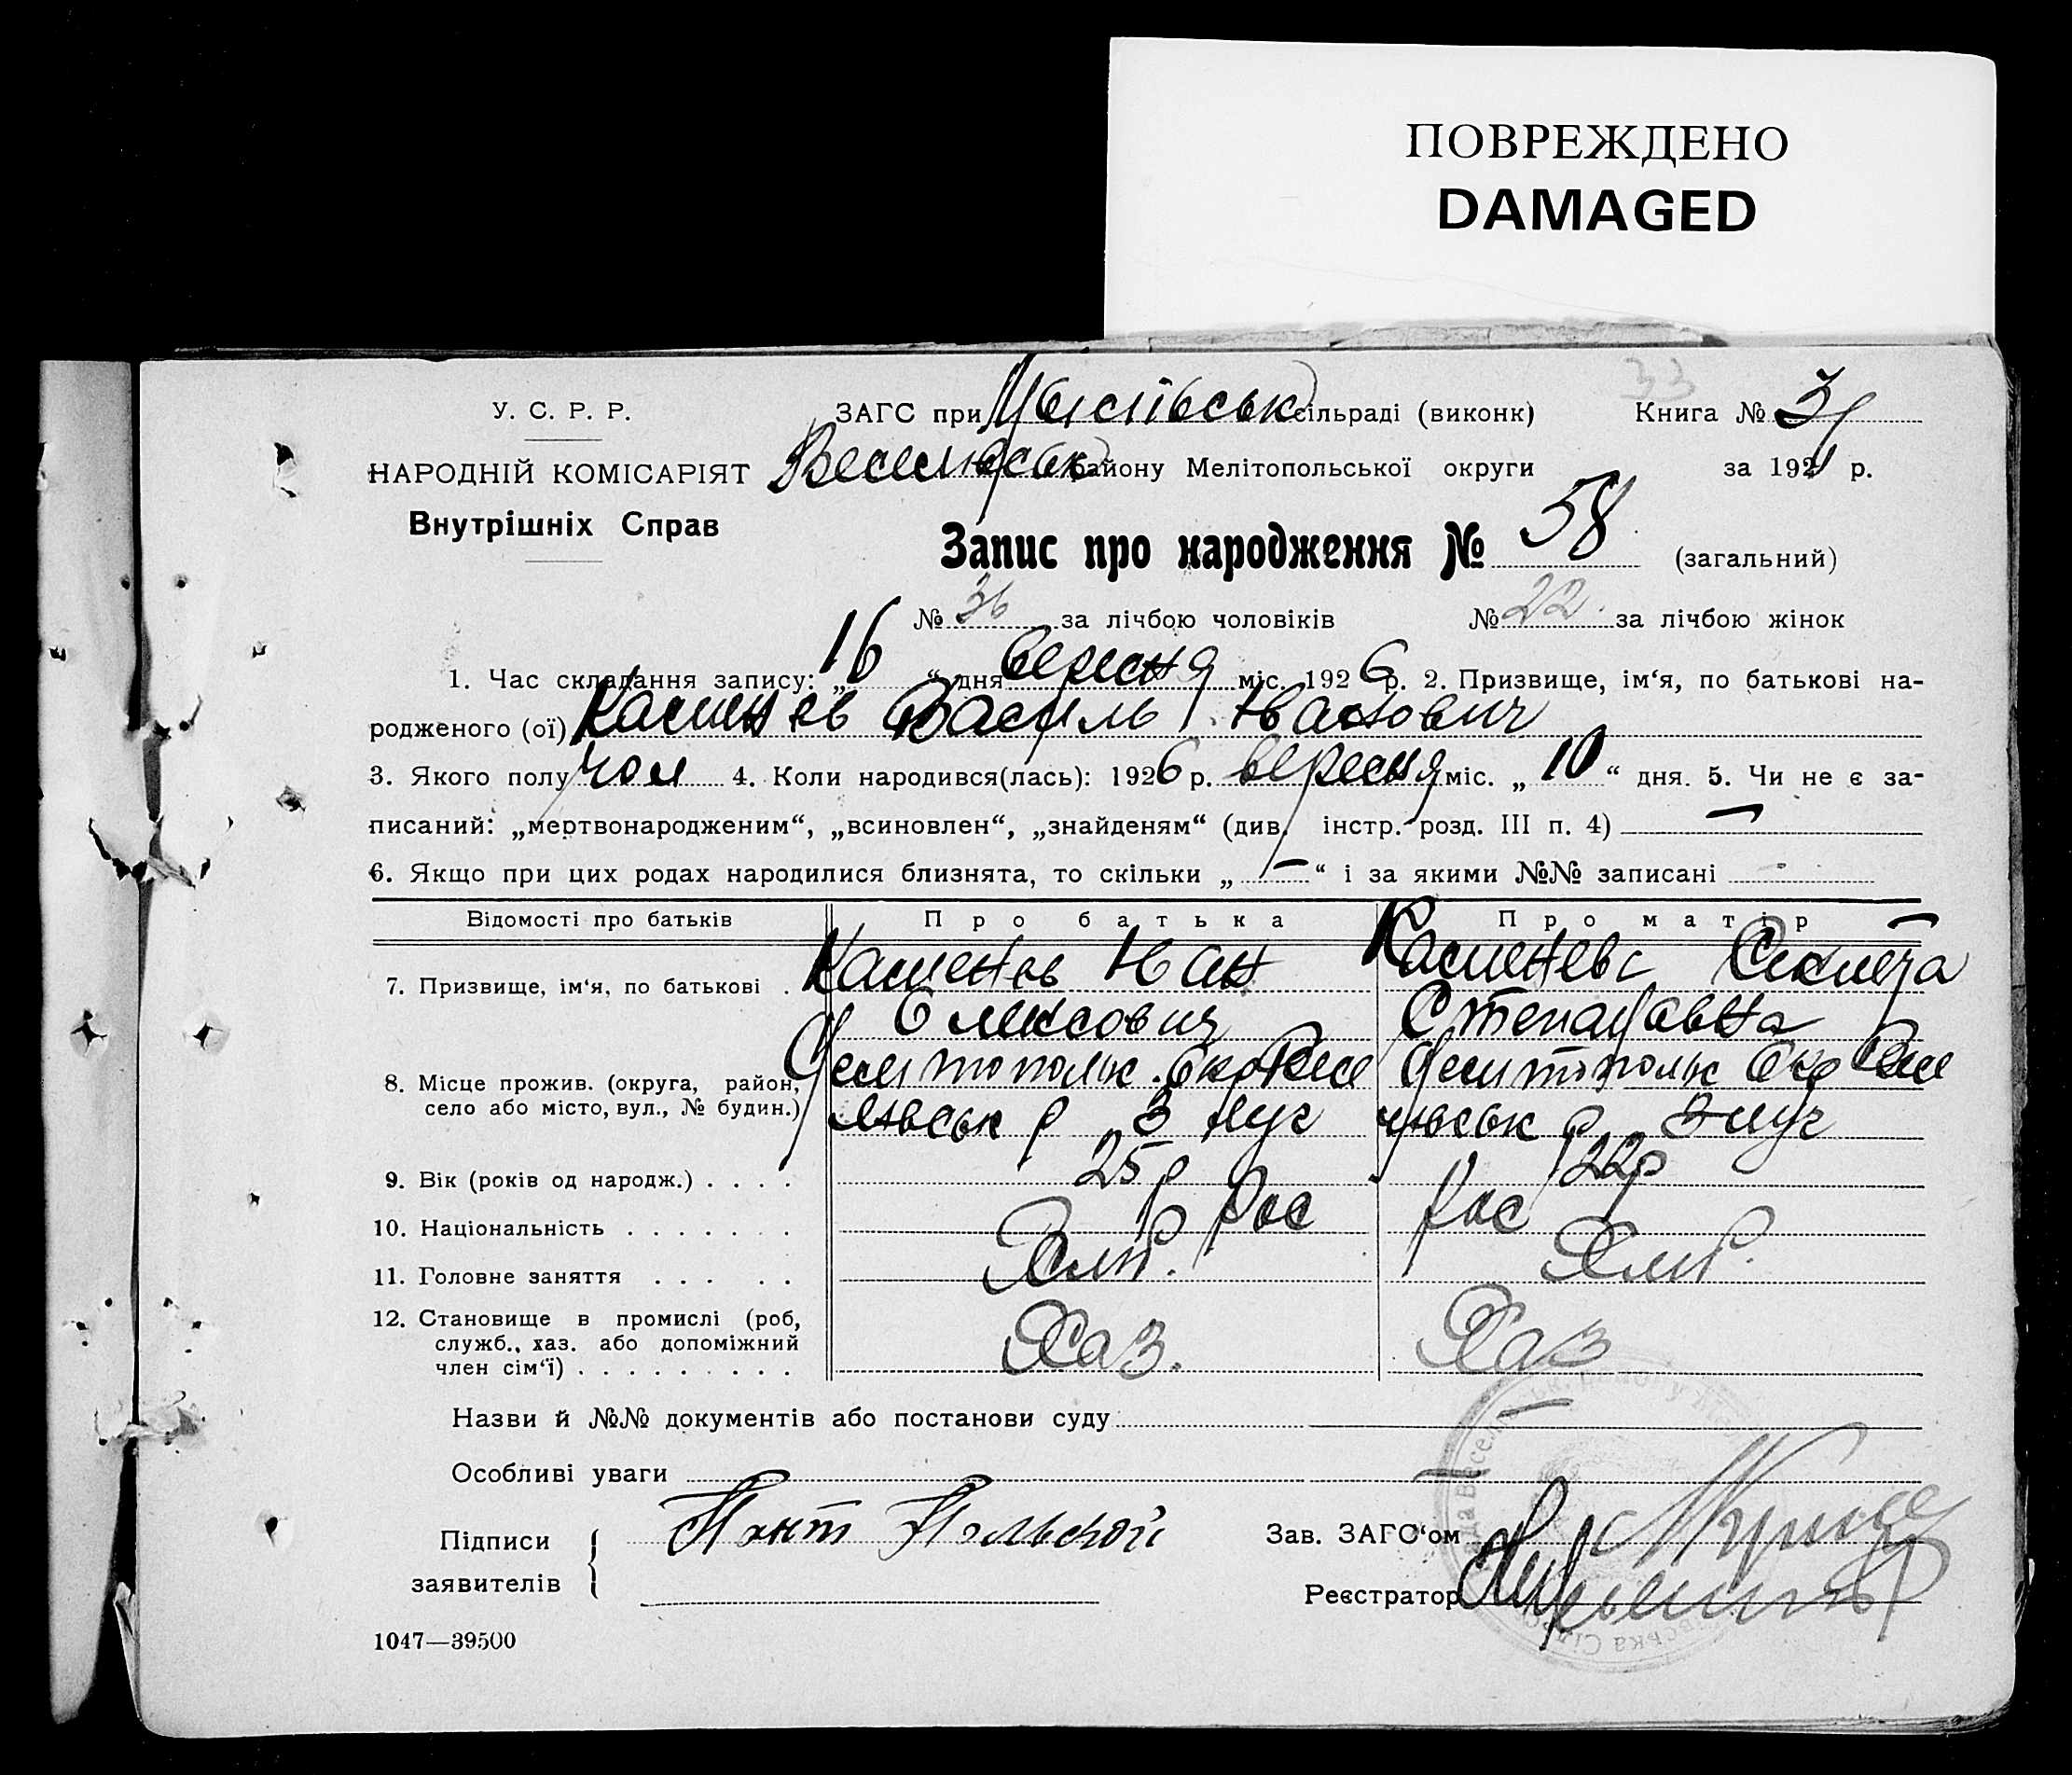 ПОВРЕЖДЕНО
DAMAGED
33
У. С. Р. Р. ЗАГС при сільраді (виконк) Книга № 3
НАРОДНІЙ КОМІСАРІЯТ району Мелітопольської округи за 192 р.
Внутрішніх Справ
Запис про народження № 58 (загальний)
№ 36 за лічбою чоловіків № 22 за лічбою жінок
1. Час складання запису: „16“ дня вересня міс. 1926 р. 2. Призвище, ім‘я, по батькові на-
родженого (ої) Каменев Василь Іванович
3. Якого полу чол 4. Коли народився(лась): 1926 р. вересня міс. „10“ дня. 5. Чи не є за-
писаний: „мертвонародженим“, „всиновлен“, „знайденям“ (див. інстр. розд. III п. 4) —
6. Якщо при цих родах народилися близнята, то скільки „—“ і за якими №№ записані -
Відомості про батьків Про батька Про матір
7. Призвище, ім‘я, по батькові . Каменев Іван Каменева
Олексович Степанавна
8. Місце прожив. (округа, район, Мелитопольк. Окр Весе Мелитопольк Окр Весе
село або місто, вул., № будин.) лівськ р лівськ р
9. Вік (років од народж.) . . . . 25 р 22 р
10. Національність . . . . . . . Рос Рос
11. Головне заняття . . . . . Хліб. Хліб.
12. Становище в промислі (роб,
служб., хаз. або допоміжний
член сім‘ї) . . . . . . . . . Хаз. Хаз
Назви й №№ документів або постанови суду —
Особливі уваги —
Підписи Зав. ЗАГС‘ом
заявителів Реєстратор
1047—39500